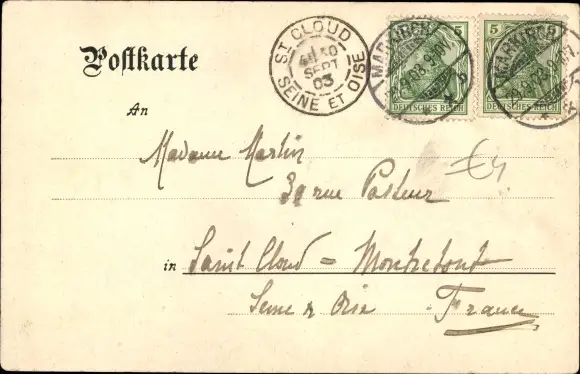 Postkarte
ST CLOUD
30
SEPT
03
SEINE ET OISE
5 5
MARBURG MARBURG
DEUTSCHES REICH DEUTSCHES REICH
An
Madame Martin
30 rue Pasteur
in Saint Cloud = Montretout
Seine & Oise - France